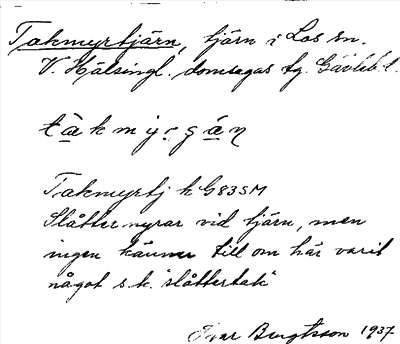 Takmyrtjärn, tjärn i Los sn.
V. Hälsingl. domsagas tg. Gävleb. l.
tàkmyrṣáṇ
Takmyrtj k G83SM
Slåttermyrar vid tjärn, men
ingen känner till om här varit
något s.k. "slåttertak"
Ivar Bengtsson 1937